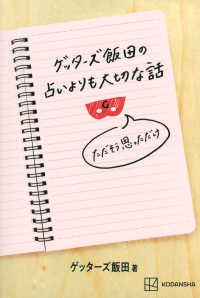 ゲッターズ飯田の
占いよりも大切な話
ただそう思っただけ
ゲッターズ飯田 著
KODANSHA